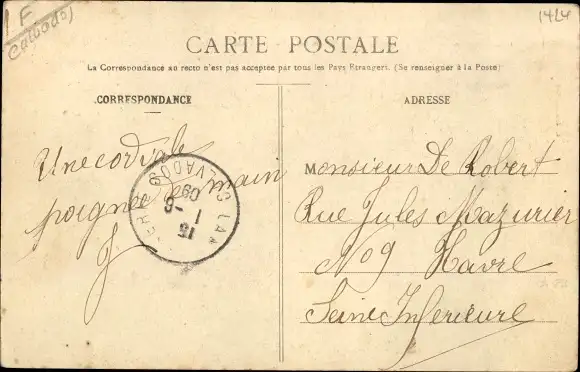 F
Calvados)
14L4
CARTE POSTALE
La Correspondance au recto n'est pas acceptée par tous les Pays Etrangers. (Se renseigner à la Poste)
CORRESPONDANCE
ADRESSE
Une cordiale
poignée de main
J
CALVADOS
15
1 -8
09
Monsieur De Robert
Rue Jules Mazurier
No 9 Havre
Seine Inferieure